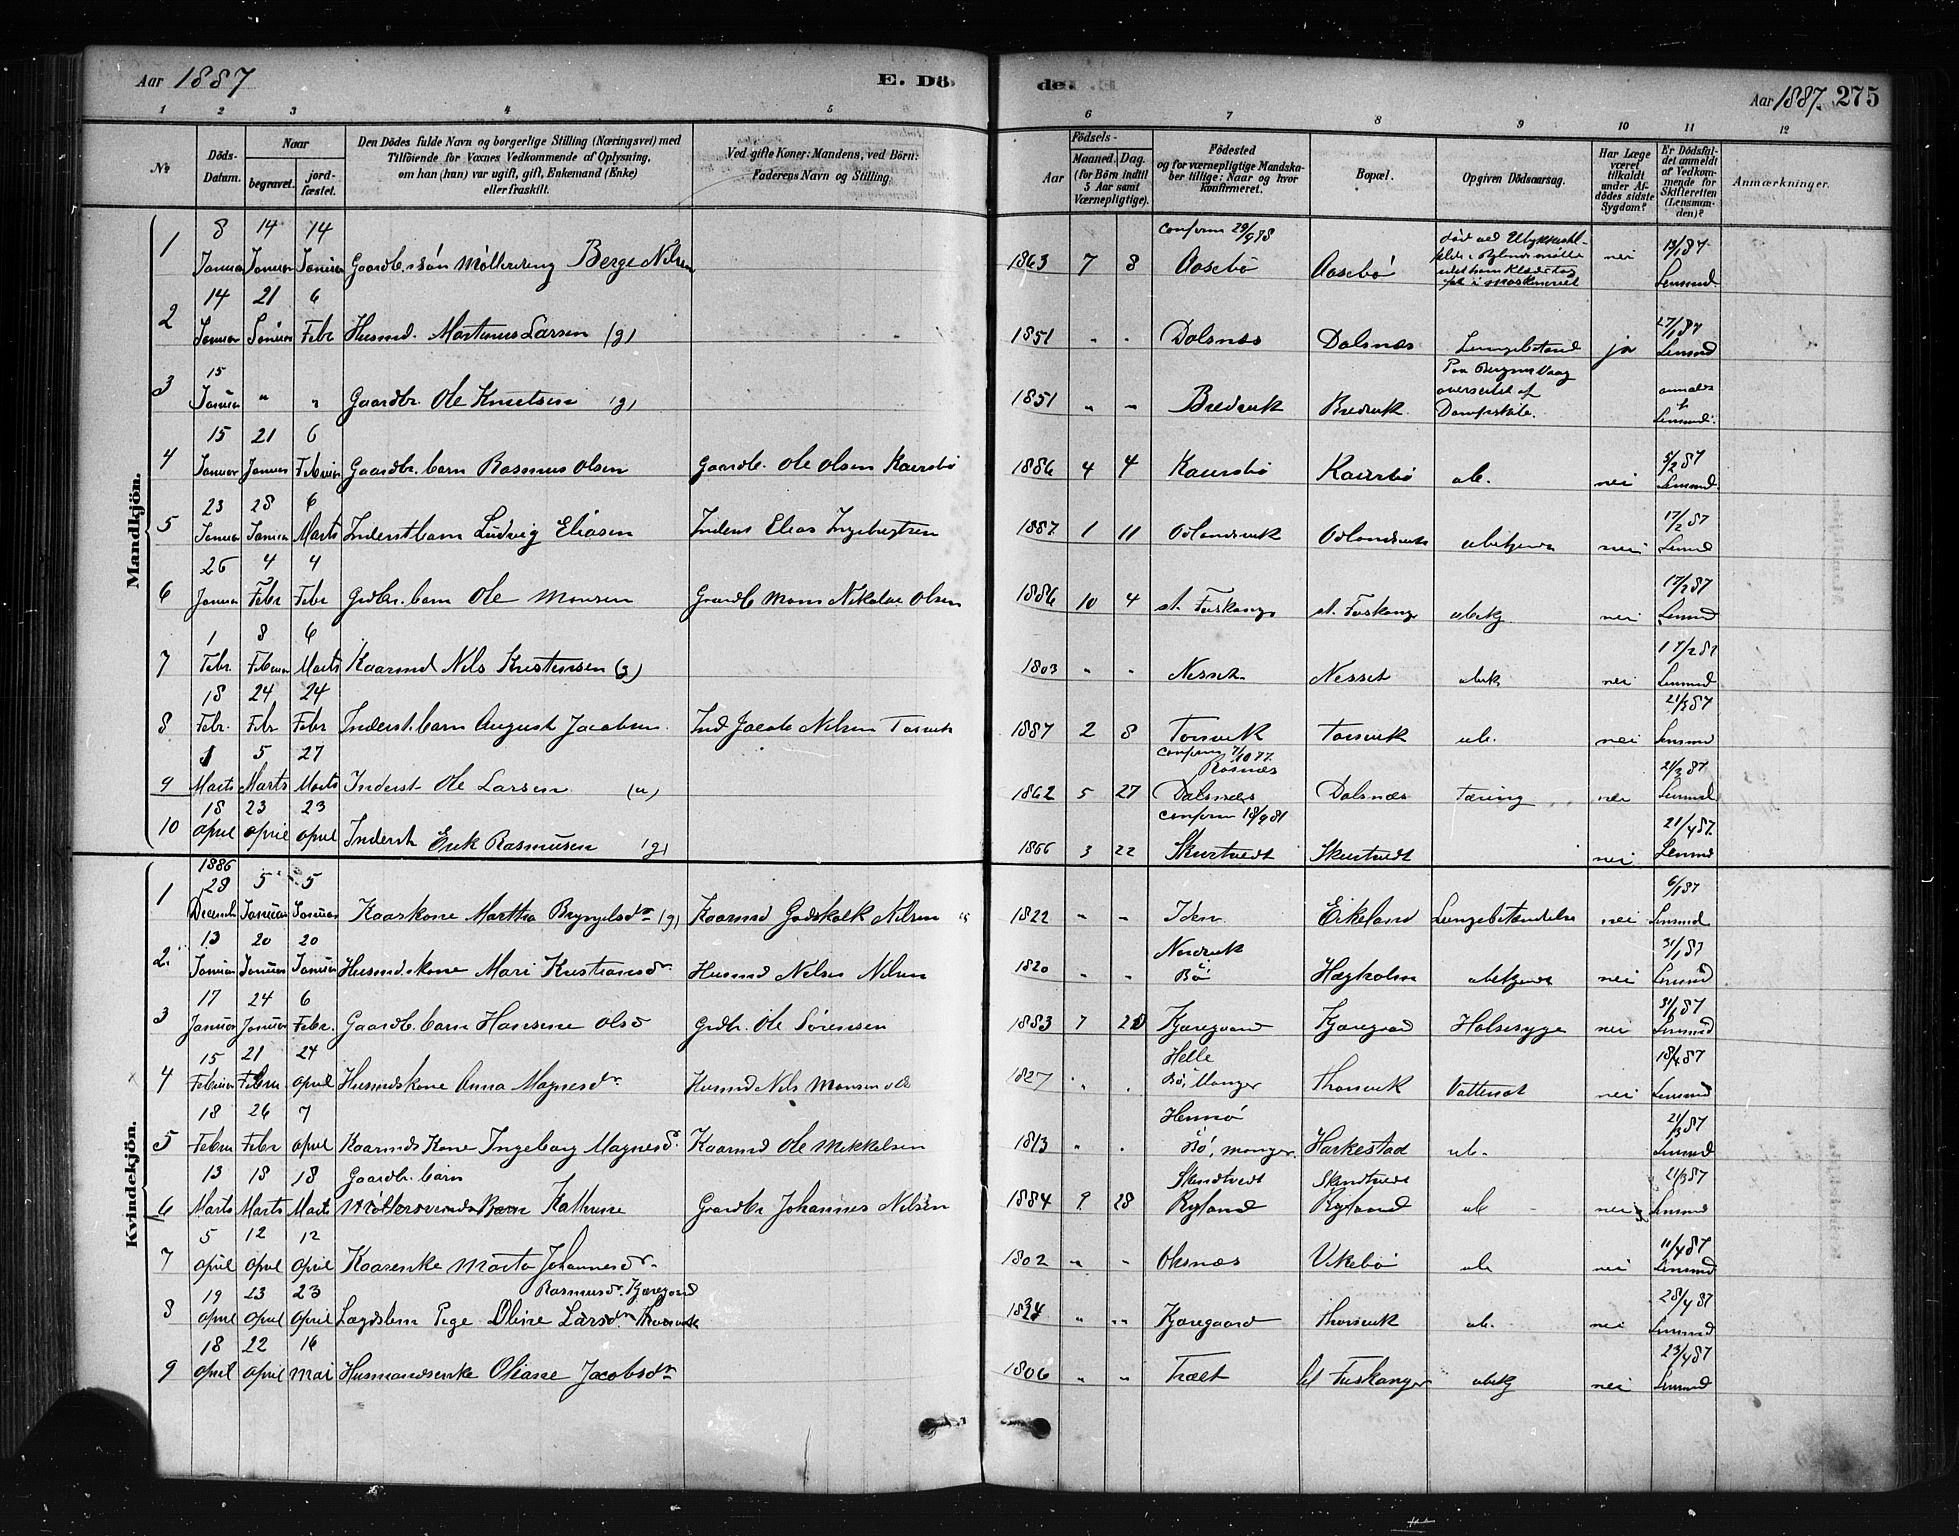 Aar 1887
E. Dö
de.
Aar 1887. 275
1 2 3 4 5 6 7 8 9 10 11 12
No
Döds-Datum.
Naar
begravet.
jord-fæstet.
Den Dödes fulde Navn og borgerlige Stilling (Næringsvei) med
Tilföiende for Voxnes Vedkommende af Oplysning,
om han (hun) var ugift, gift, Enkemand (Enke)
eller fraskilt.
Ved gifte Koner: Mandens, ved Börn:
Faderens Navn og Stilling.
Födsels-
Aar
Maaned. Dag.
(for Börn indtil
5 Aar samt
Værnepligtige).
Födested
og for værnepligtige Mandska-
ber tillige: Naar og hvor
Konfirmeret.
Bopæl.
Opgiven Dödsaarsag.
Har Læge
været
tilkaldt
under Af-
dödes sidste
Sygdom?
Er Dödsfal-
det anmeldt
af Vedkom-
mende for
Skifteretten
(Lensman-
den)?
Anmærkninger.
Mandkjön.
1 8 Januar 14 Januar 14 Januar Gaardbr. sön Mølledreng Berge Nilsen 1863 7 8 confirm 29/9 78 Aasebö Aasebö nei 19/1 87 Lensmd
2 14 Januar 21 Januar 6 Febr Husmd. Martinus Larsen (g) 1851 " " Dalsnæs Dalsnæs ja 27/1 87 Lensmd
3 15 Januar " " Gaardbr. Ole Knutsen (g) 1851 " " Bredvik Bredvik oversejlet af Dampskib. Lensmd.
4 15 Januar 21 Januar 6 Februar Gaardbr. barn Rasmus Olsen Gaardbr. Ole Olsen 1886 4 4 ub. nei 5/2 87 Lensmd.
5 23 Januar 28 Januar 6 Marts Inderstbarn Ludvig Eliasen Inders Elias Ingebrigtsen 1887 1 11 Odlandsvik Odlandsvik ubekjendt nei 17/2 87 Lensmd
6 26 Januar 4 Febr 4 Febr Grdbr. barn Ole Monsen Gaardb Mons Nikolai Olsen 1886 10 4 st. Fuskanger st. Fuskanger ubekj. nei 17/2 87 Lensmd
7 1 Febr. 8 Februar 6 Marts Kaarmd Nils Kristensen (g) 1803 " " Nesset Nesset ubek nei 17/2 87 Lensmd
8 18 Febr. 24 Febr 24 Febr Inderst. barn August Jacobsen Ind Jacob Nilsen Torsvik 1887 2 8 Torsvik Torsvik ub. nei 21/3 87 Lensmd
9 1 Marts 5 Marts 27 Marts Inderst Ole Larsen (u) 1862 5 27 confirm 7/10 77. Rosnæs Dalsnæs Dalsnæs Tæring nei 21/3 87 Lensmd
10 18 april 23 april 23 april Inderst Erik Rasmusen (g) 1866 3 22 confirm 18/9 81 Skurtvedt Skurtvedt nei 21/4 87. Lensmd
Kvindekjön.
1 1886 28 Decemb 5 Januar 5 Januar Kaarkone Martha Bryngelsdr (g) Kaarmd Godskalk Nilsen 1822 " " Iden Eikeland Lungebetændelse nei 6/1 87 Lensmd
2 13 Januar 20 Januar 20 Januar Husmdskone Mari Kristiansdr Husmd Nelsen Nilsen 1820 " " Nordvik i Bö Hægholm ubekjendt nei 31/1 87 Lensmd
3 17 Januar 24 Januar 6 Febr. Gaardb. barn Hansine Olsd Grdbr. Ole Sörensen 1883 7 Kjæregaard Kjæregaard Halsesyge nei 31/1 87 Lensmd
4 15 Februar 21 Februar 24 april Husmdskone Anna Magnesdr Husmd Nils Monsen 1827 " " Helle Bö, Manger Thorsvik Vattersot nei 18/4 87 Lensmd
5 18 Februar 26 Febr 7 april Kaarmds Kone Ingeborg Magnesd. Kaarmd Ole Mikkelsen 1813 " " Hennö i Bö, manger Harkestad ub. 21/3 87 Lensmd
6 13 Marts 18 Marts 18 Marts Gaardbr. barn Kathrine Gaardbr Johannes Nilsen 1884 9 28 Skurtvedt Ryland Skurtvedt Ryland ub nei 21/3 87 Lensmd
7 5 april 12 april 12 april Kaarenke Marta Johannesdr. 1802 " " Oksnæs Vikebö ub nei 11/4 87 Lensmd
8 19 april 23 april 23 april Lægdslem Pige Oline Larsdr. Rasmusdr. Kjæregaard 1834 " " Kjæregaard Thorsvik ub. nei 28/4 87 Lensmd
9 18 april 22 april 16 mai Husmandsenke Oliane Jacobsdr 1806 " " Træet lit Fuskanger ubekj nei 23/4 87 Lensmd